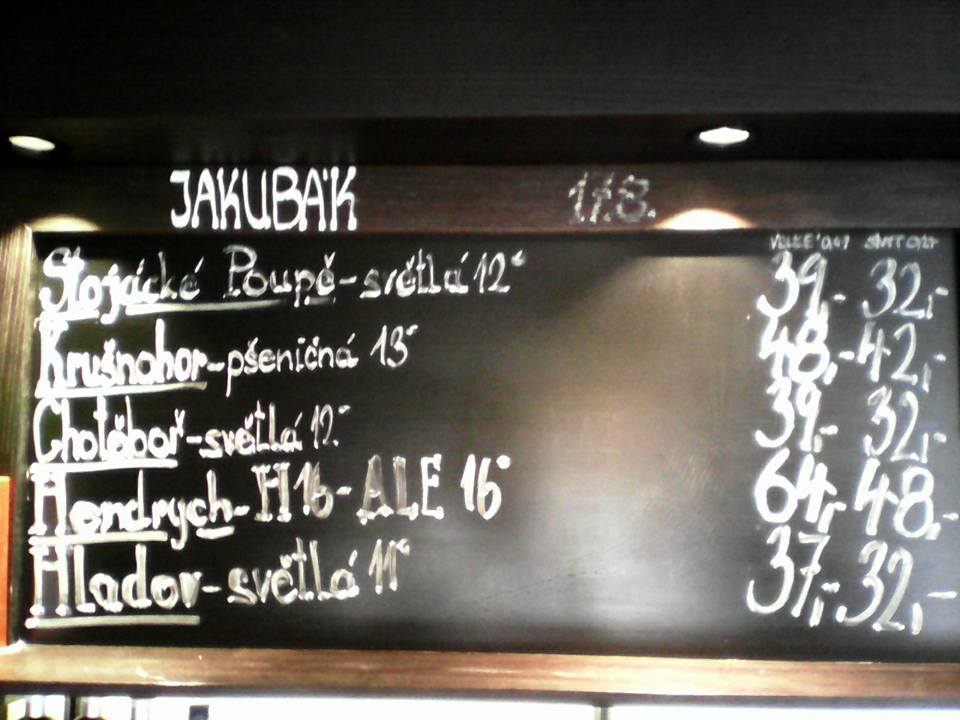 JAKUBÁK 17.8.
Stojácké Poupě-světlá 12° 39,- 32,-
Krušnohor-pšeničná 13° 48,- 42,-
Chotěboř-světlá 12° 39,- 32,-
Hendrych-H16-ALE 16° 64,- 48,-
Hladov-světlá 11° 37,- 32,-